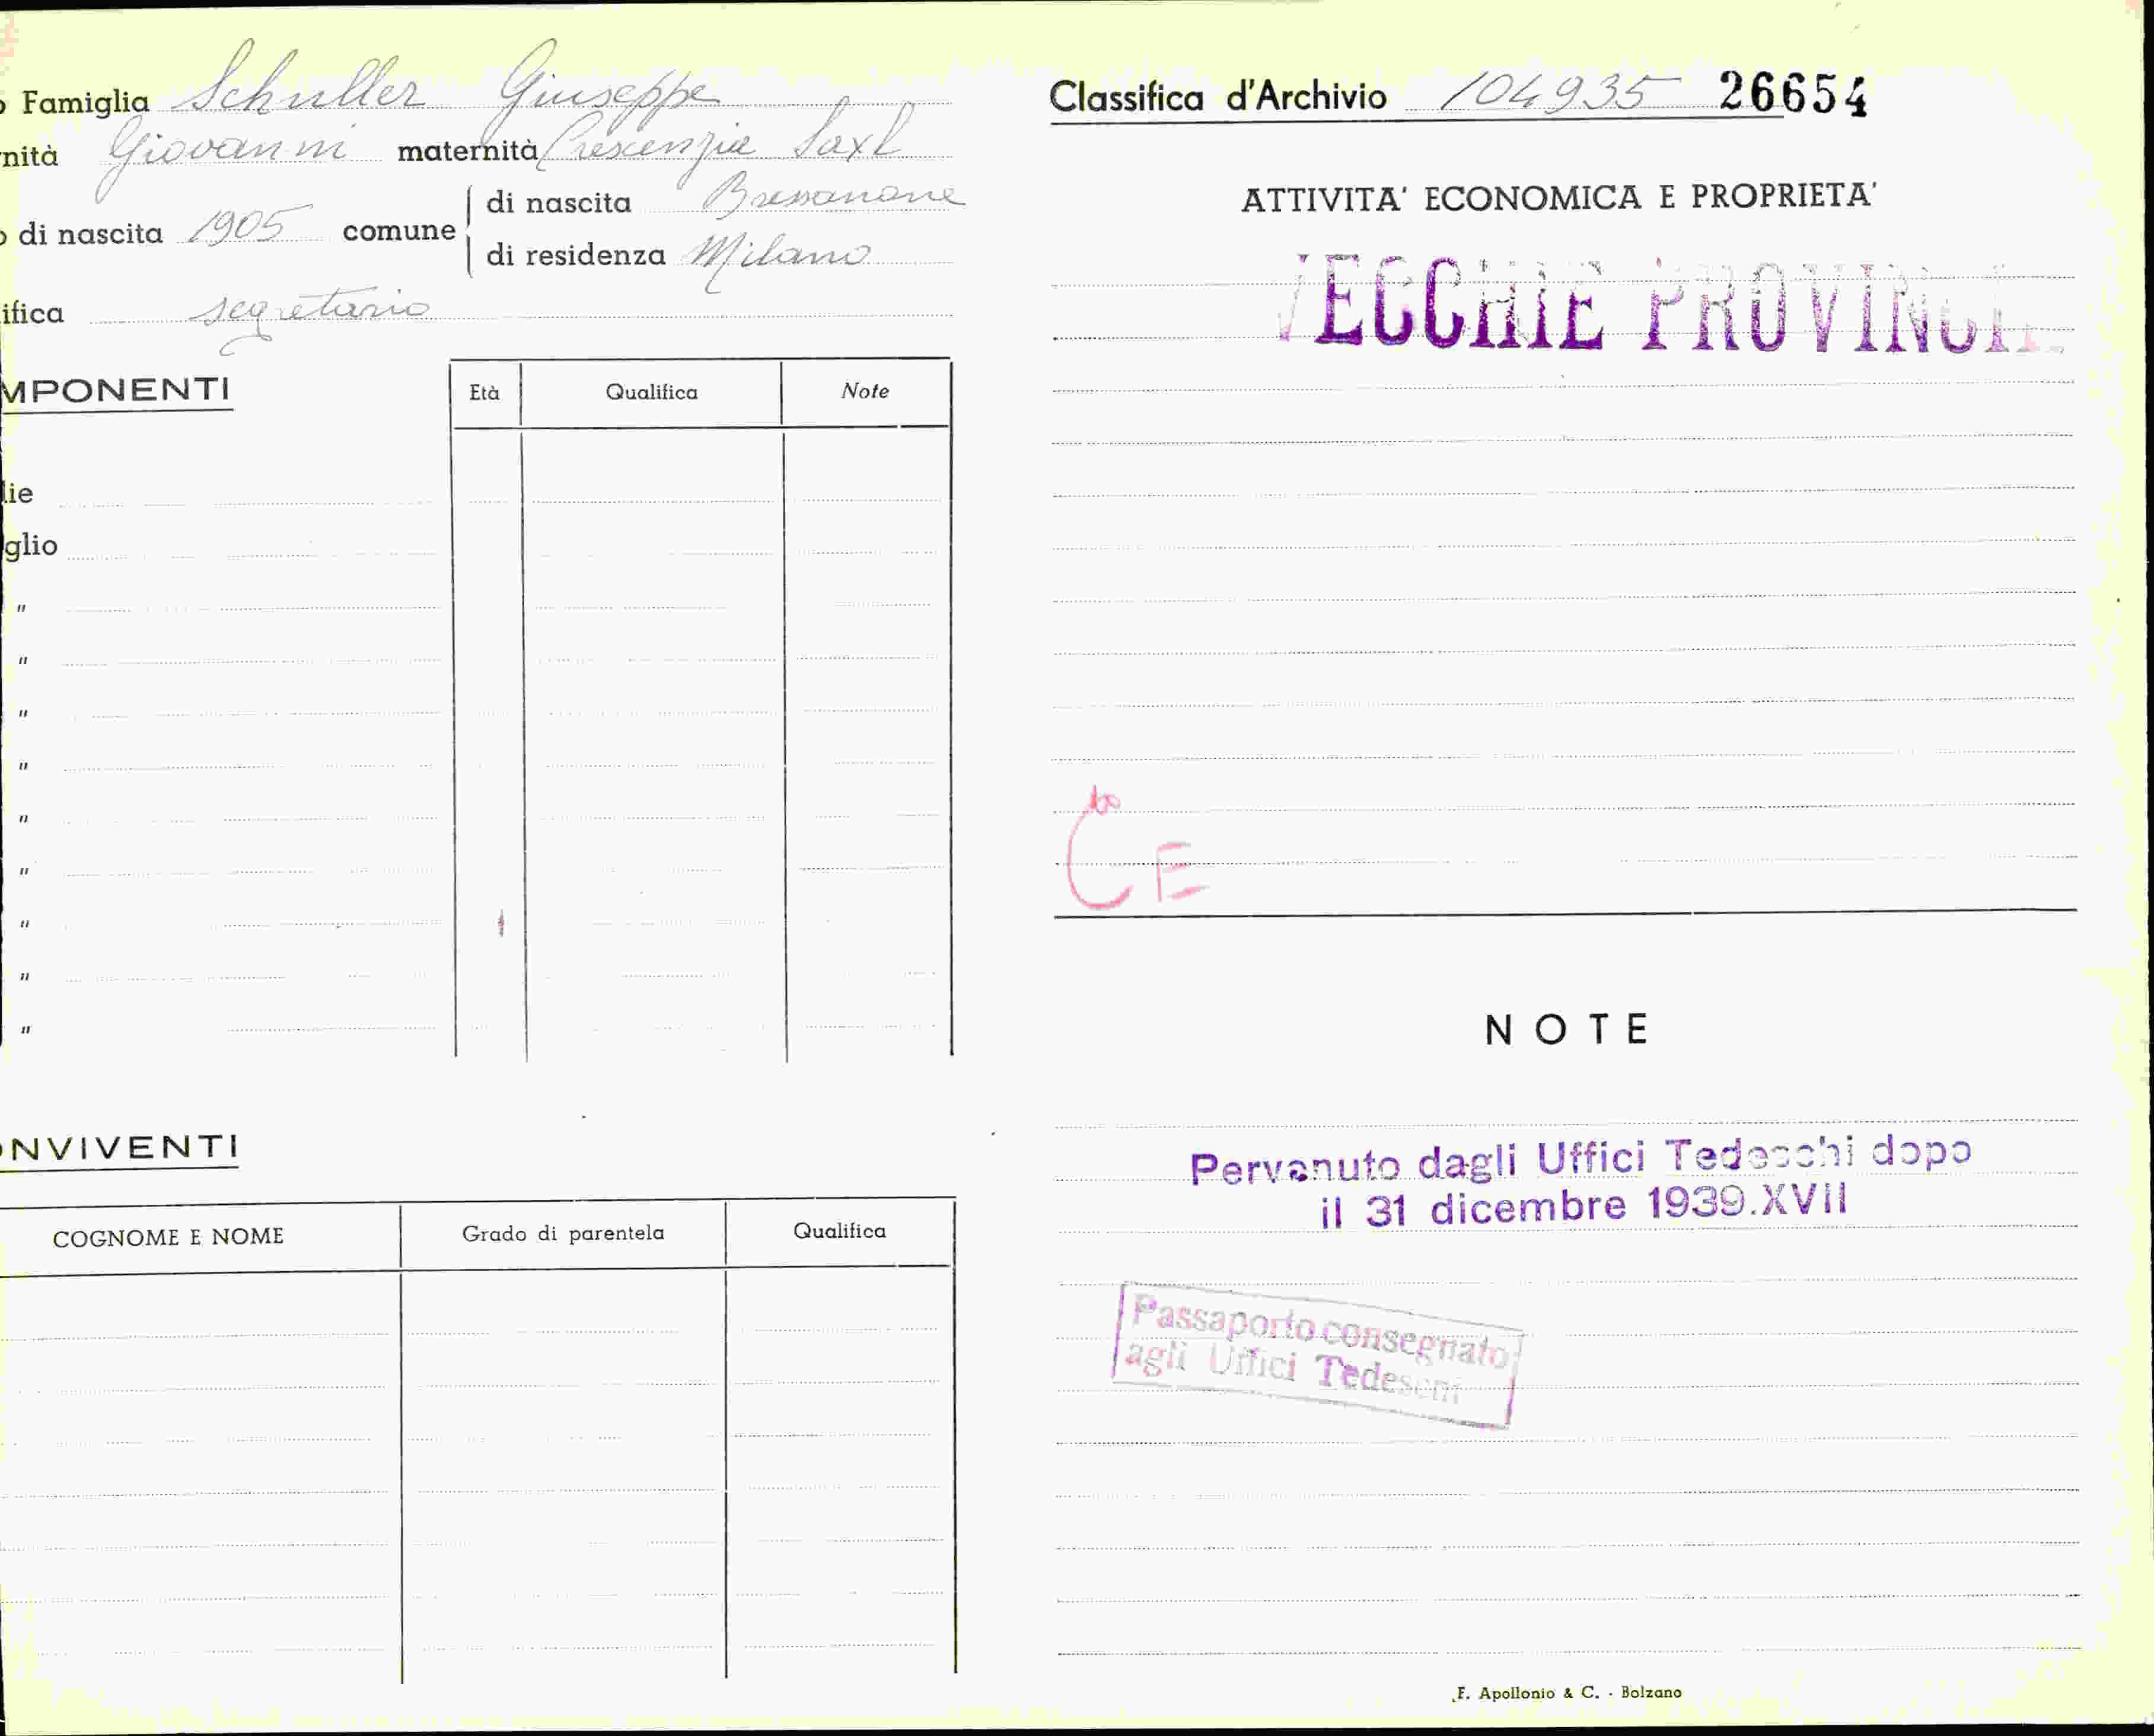 Famiglia Schuller Giuseppe
nità Giovanni maternità Crescenzia Saxl
di nascita 1905 comune di nascita Bressanone
di residenza Milano
ifica segretario
MPONENTI
Età Qualifica Note
lie
glio
"
"
"
"
"
"
"
"
"
NVIVENTI
COGNOME E NOME Grado di parentela Qualifica
Classifica d'Archivio 104935 26654
ATTIVITA' ECONOMICA E PROPRIETA'
VECCHIE PROVINCIE
C E
NOTE
Pervenuto dagli Uffici Tedeschi dopo
il 31 dicembre 1939.XVII
Passaporto consegnato
agli Uffici Tedeschi
F. Apollonio & C. - Bolzano